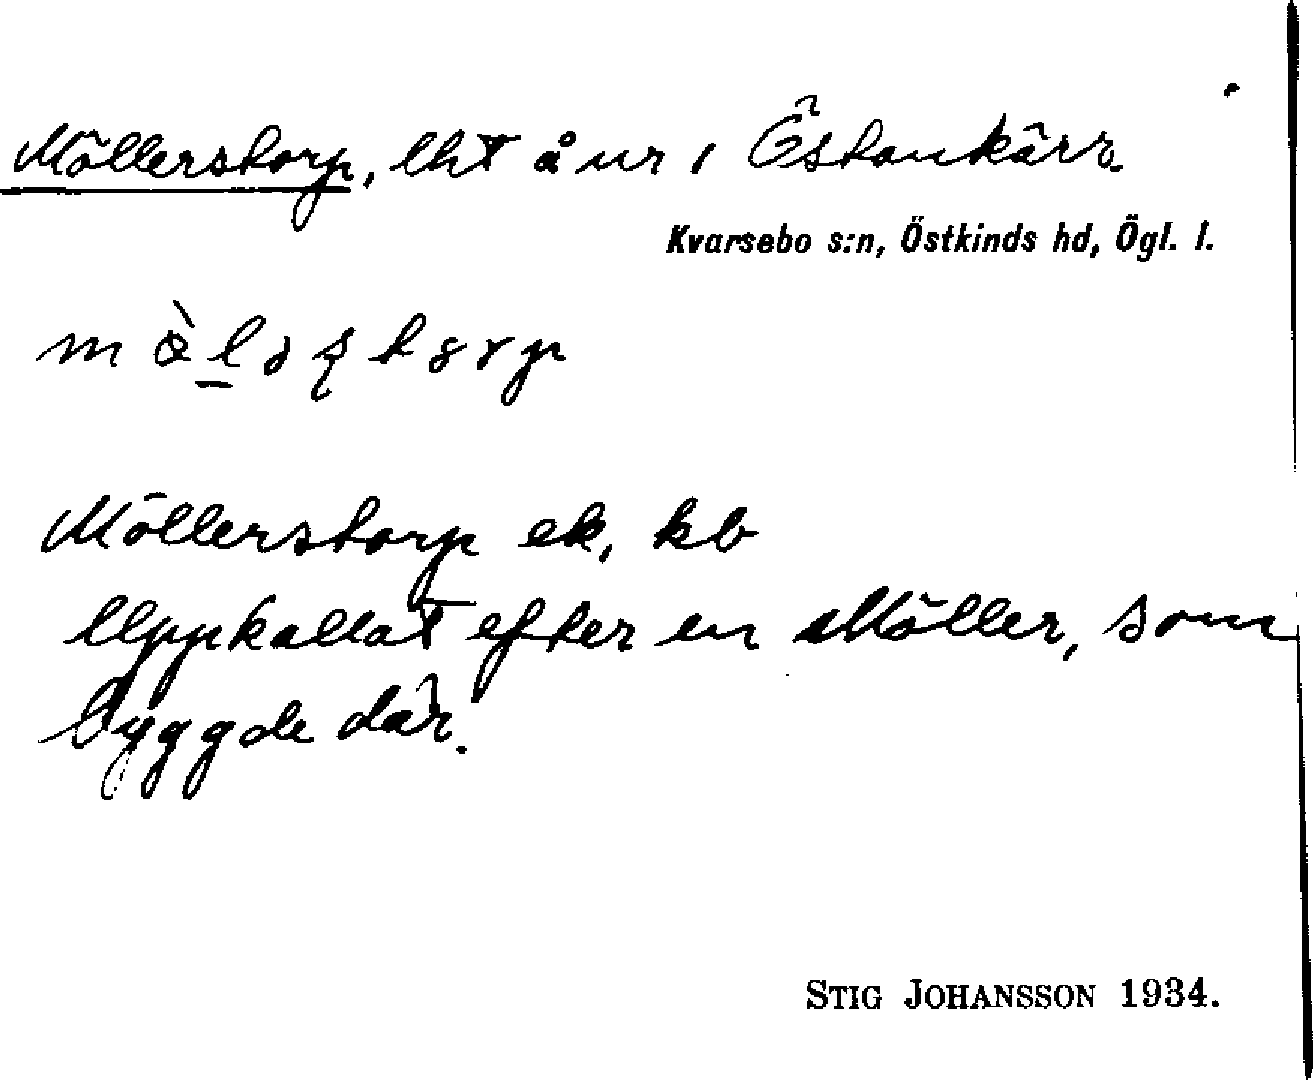 Möllerstorp, lht å nr 1 Östankärr
Kvarsebo s:n, Östkinds hd, Ögl. l.
Möllerstorp ek, kb
Uppkallat efter en Möller, som
byggde där.
STIG JOHANSSON 1934.